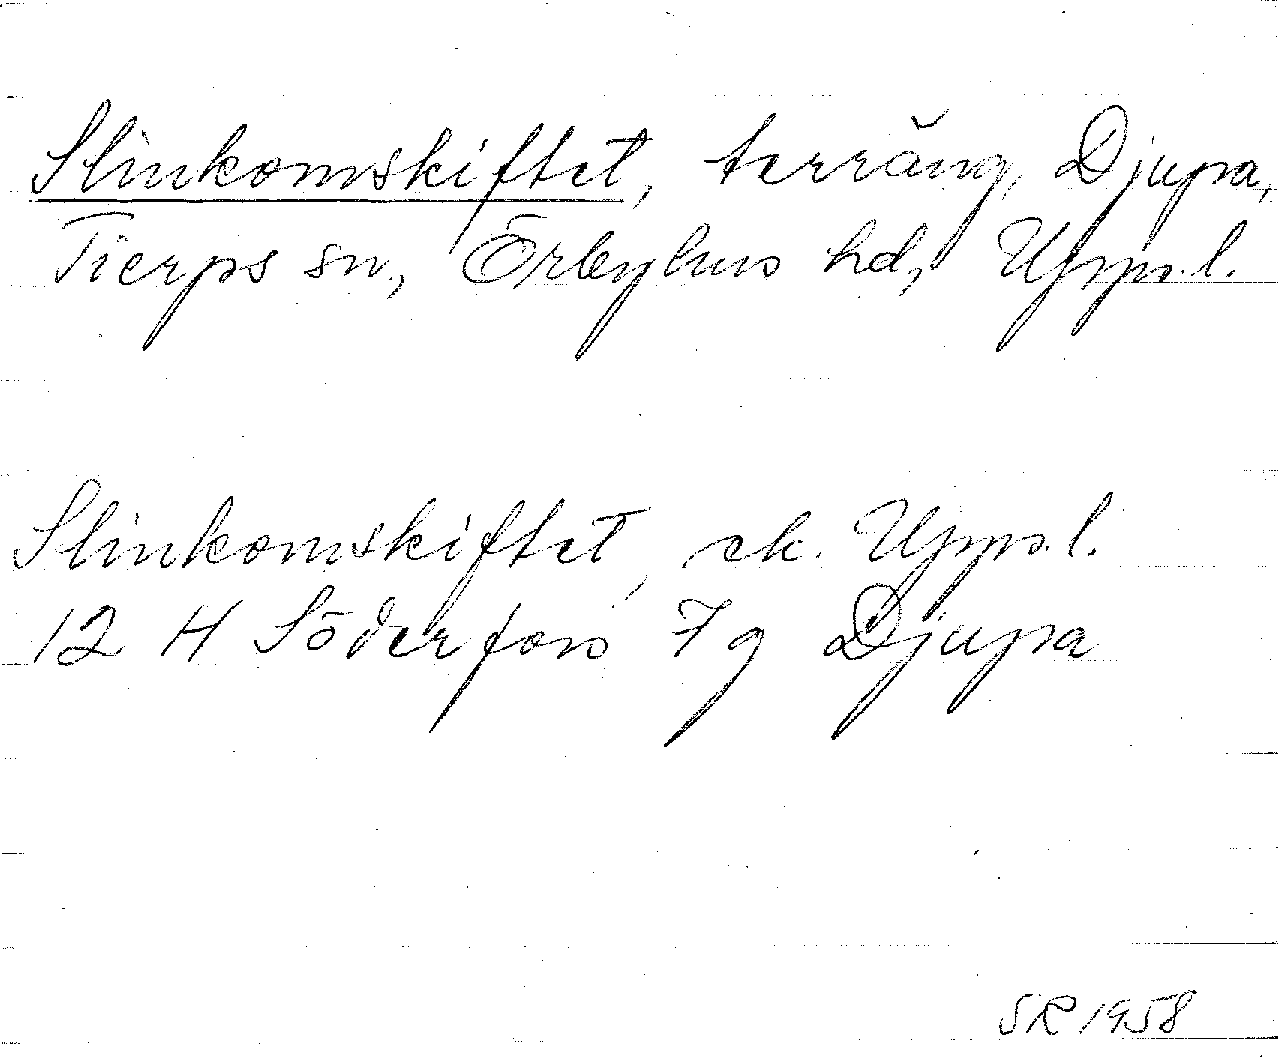 Slinkomskiftet, terräng, Djupa,
Tierps sn, Örbyhus hd, Uppl.
Slinkomskiftet, ek. Uppl.
12 H Söderfors 7g Djupa
SR 1958